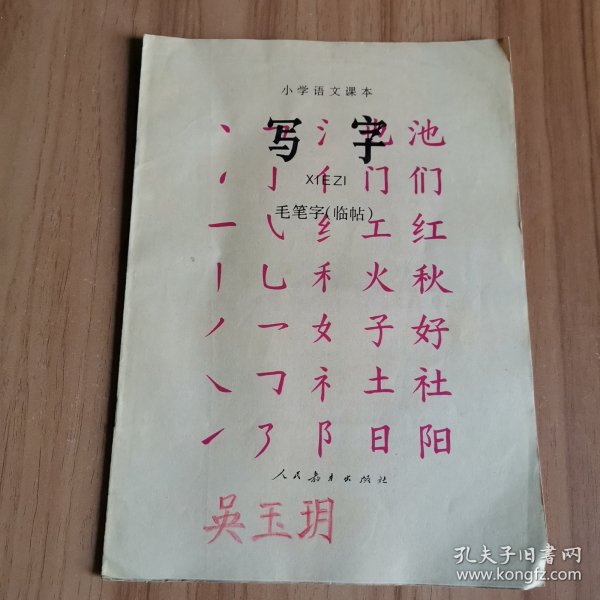 小学语文课本
写字
XIEZI
毛笔字(临帖)
丶 乛 氵 也 池
丶 亅 亻 门 们
一 乀 纟 工 红
丨 乚 禾 火 秋
丿 乛 女 子 好
㇏ 𠃌 礻 土 社
㇀ 阝 日 阳
人民教育出版社
吴玉玥
孔夫子旧书网
www.kongfz.com